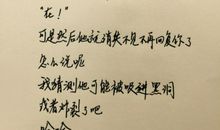 "在！"
可是然后他就消失不见不再回复你了
怎么说呢
我猜测他可能被吸到黑洞
或者炸裂了吧